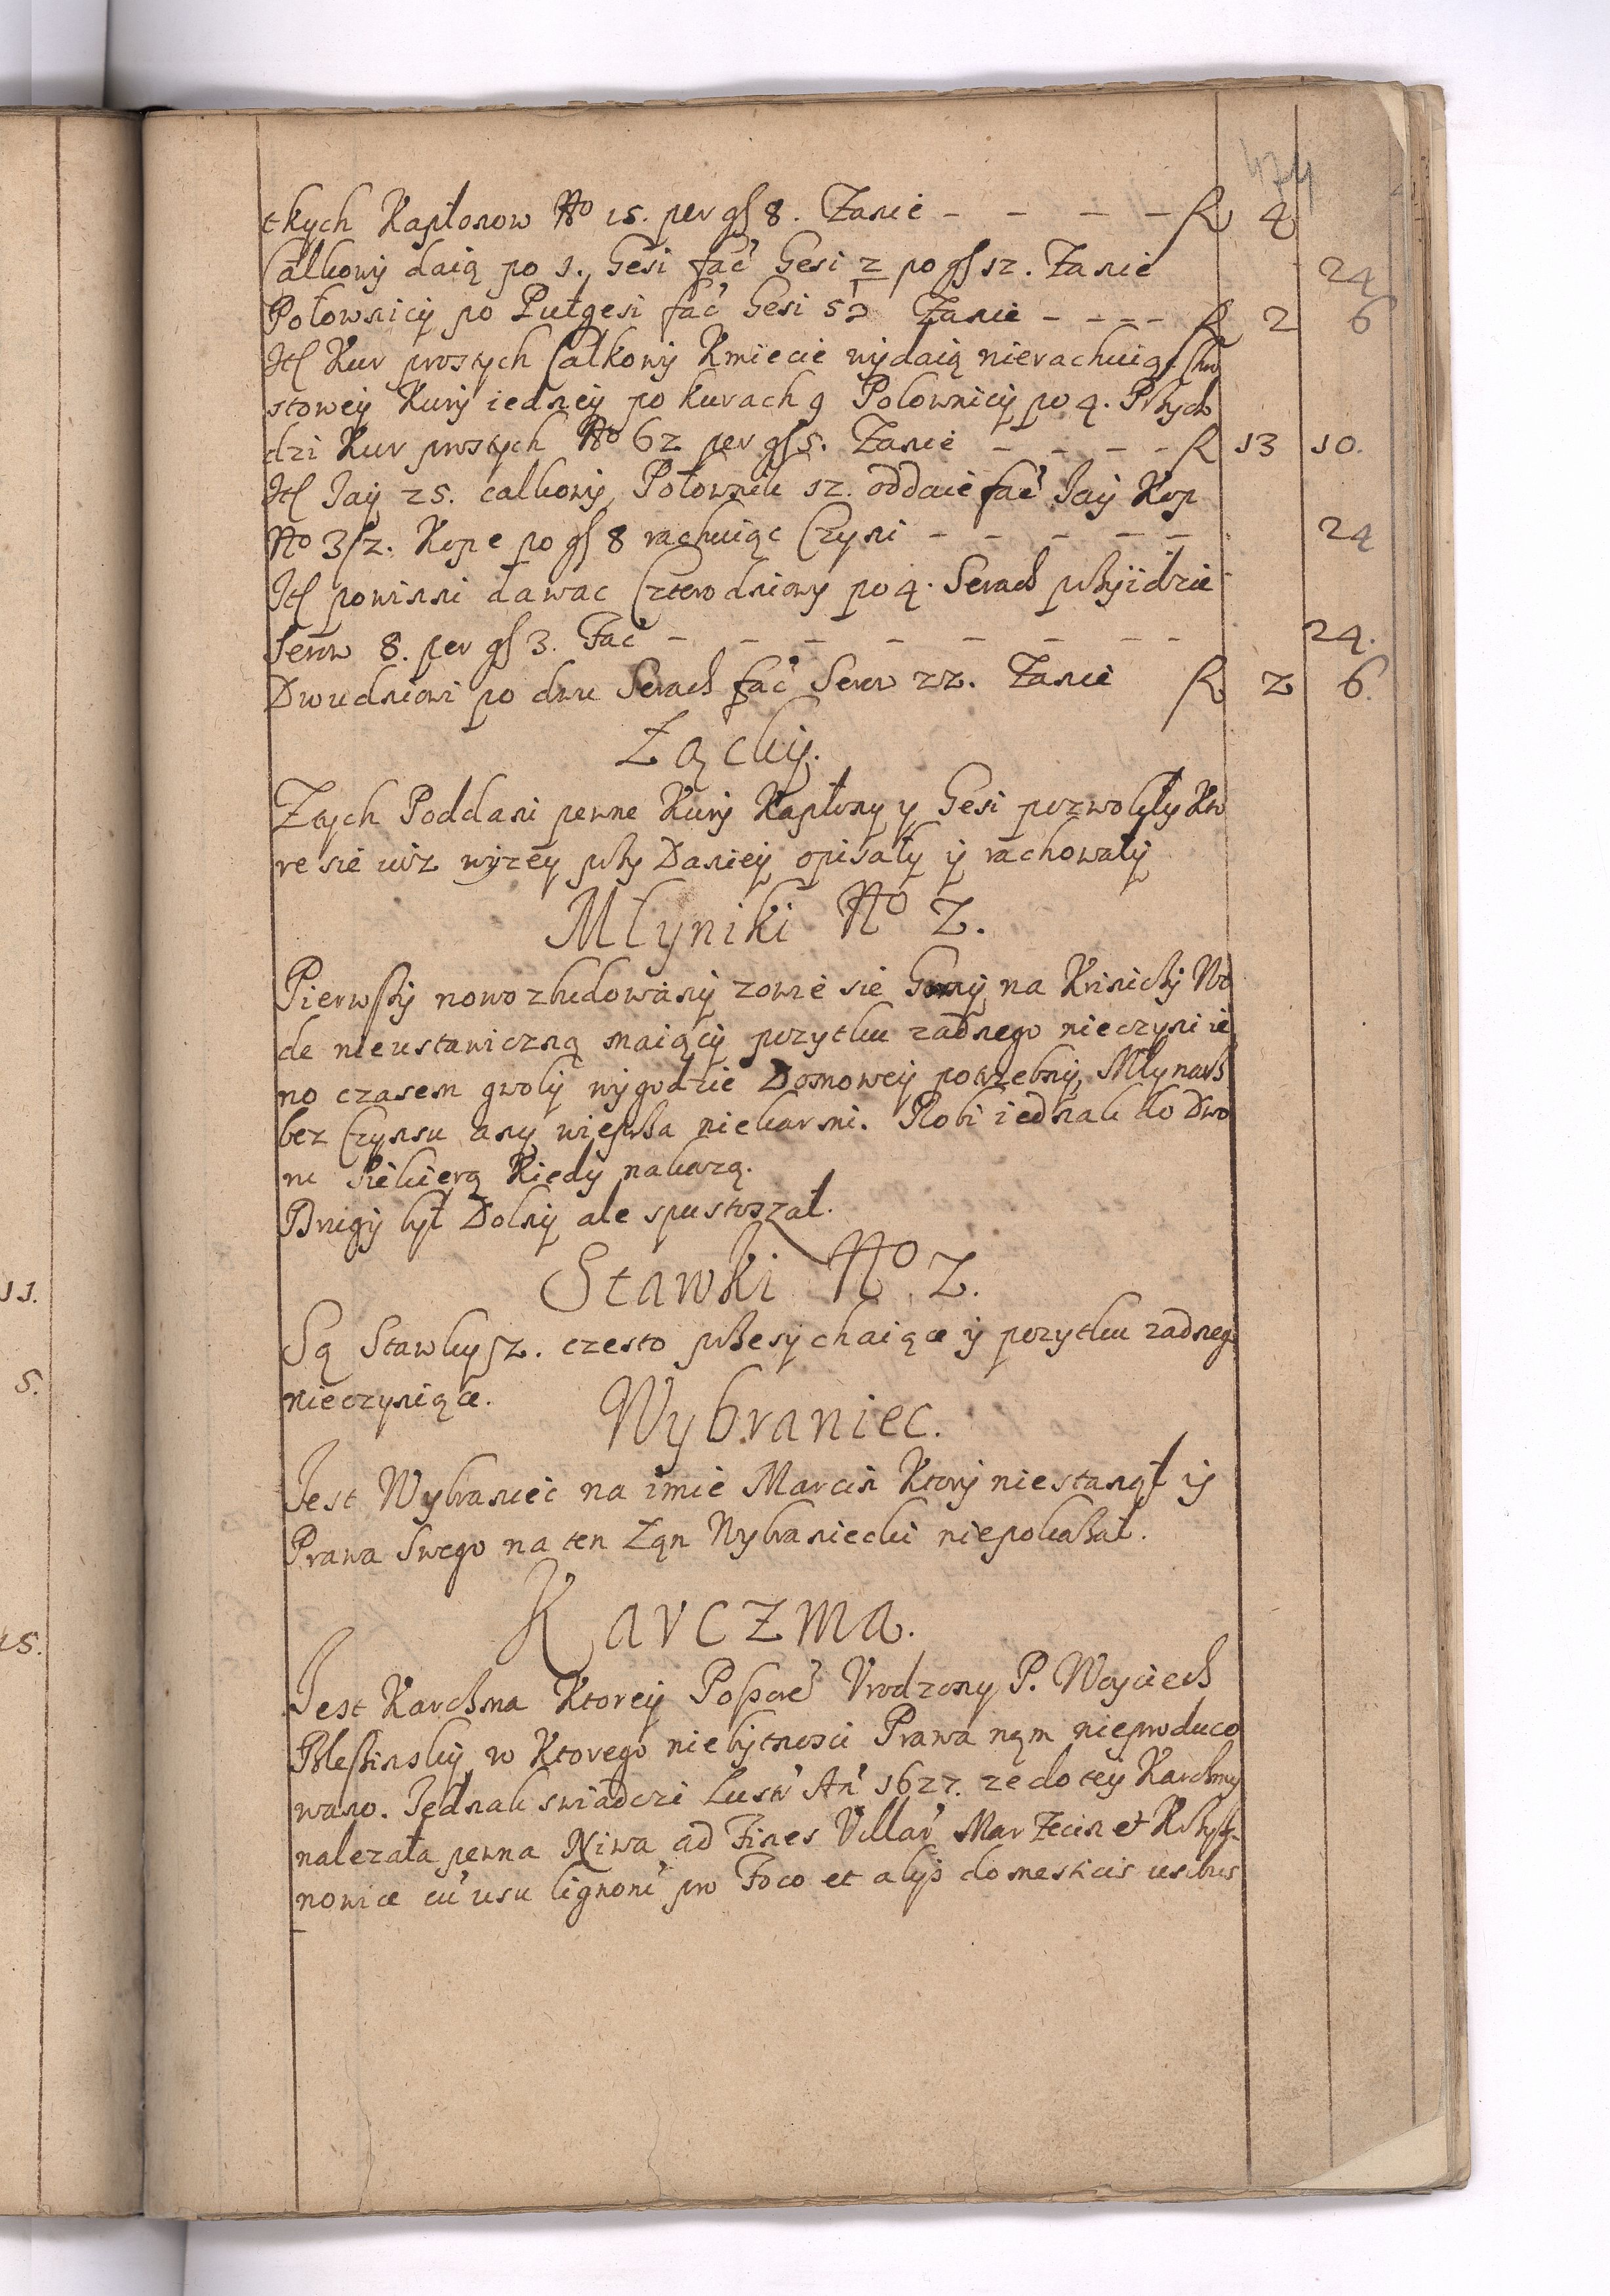 474
tkych Kapłonow No 15. per gſ 8. Zanie — — — — R 4
Całkowy daią po 1. Gesi fać Gesi 2 po gſ 12. Zanie 24
Połownicy po Pułgesi fać Gesi 5½ Zanie — — — — R 2 6
Itſ Kur prostych Całkowy Kmiecie wydaią nierachuiąc Chru
stowey Kury iedney po kurach 9 Polownicy po 4. Prżycho
dzi Kur prostych No 62 per gſ 5. Zanie — — — — R 13 10.
Itſ Jay 25. całkowy Połownik 12. oddaie fać Jay Kop
No 3/2. Kope po gſ 8 rachuiąc Czyni — — — — — 24
Itſ powinni dawac Czterodniowy po 4. Serach prżyidzie
Serow 8. per gſ 3. Fać — — — — — — — — 24.
Dwudniowi po dwu Serach fać Serow 22. Zanie R 2 6.
Zącky.
Zych Poddani pewne Kury Kapłony y Gesi pozwolyly Kto
re sie iuż wyzey prży Daniey opisały y rachowały
Młyniki No 2.
Pierwſzy nowozbudowany zowie sie Gorny na Krinicky Wo
de nieustawiczną maiący pozytku zadnego nieczyni ie
no czasem gwoly wygodzie Domowey potrzebny, Młynarż
bez Czynsu any wieprża niekarmi. Robi iednak do Dwo
ru Siekierą Kiedy nakażą.
Drugy był Dolny ale spustoszał.
Stawki No 2.
Są Stawky 2. czesto prżesychaiące y pozytku zadnego
nieczyniące.
Wybraniec.
Jest Wybraniec na imie Marcin Ktory niestanął y
Prawa Swego na ten Łąn Wybraniecki niepokazał.
Karczma.
Jest Karchma Ktorey Poſſor Vrodzony P. Woyciech
w Ktorego niebytnosci Prawa nąm nieproduco
wano. Jednak swiadczi Lustr An 1627. ze do tey Karchmy
nalezała pewna Niwa ad Fines Villar Mar Zecin et
nowice cu usu lignoru pro Foco et alijs domesticis usibus
11.
5.
15.